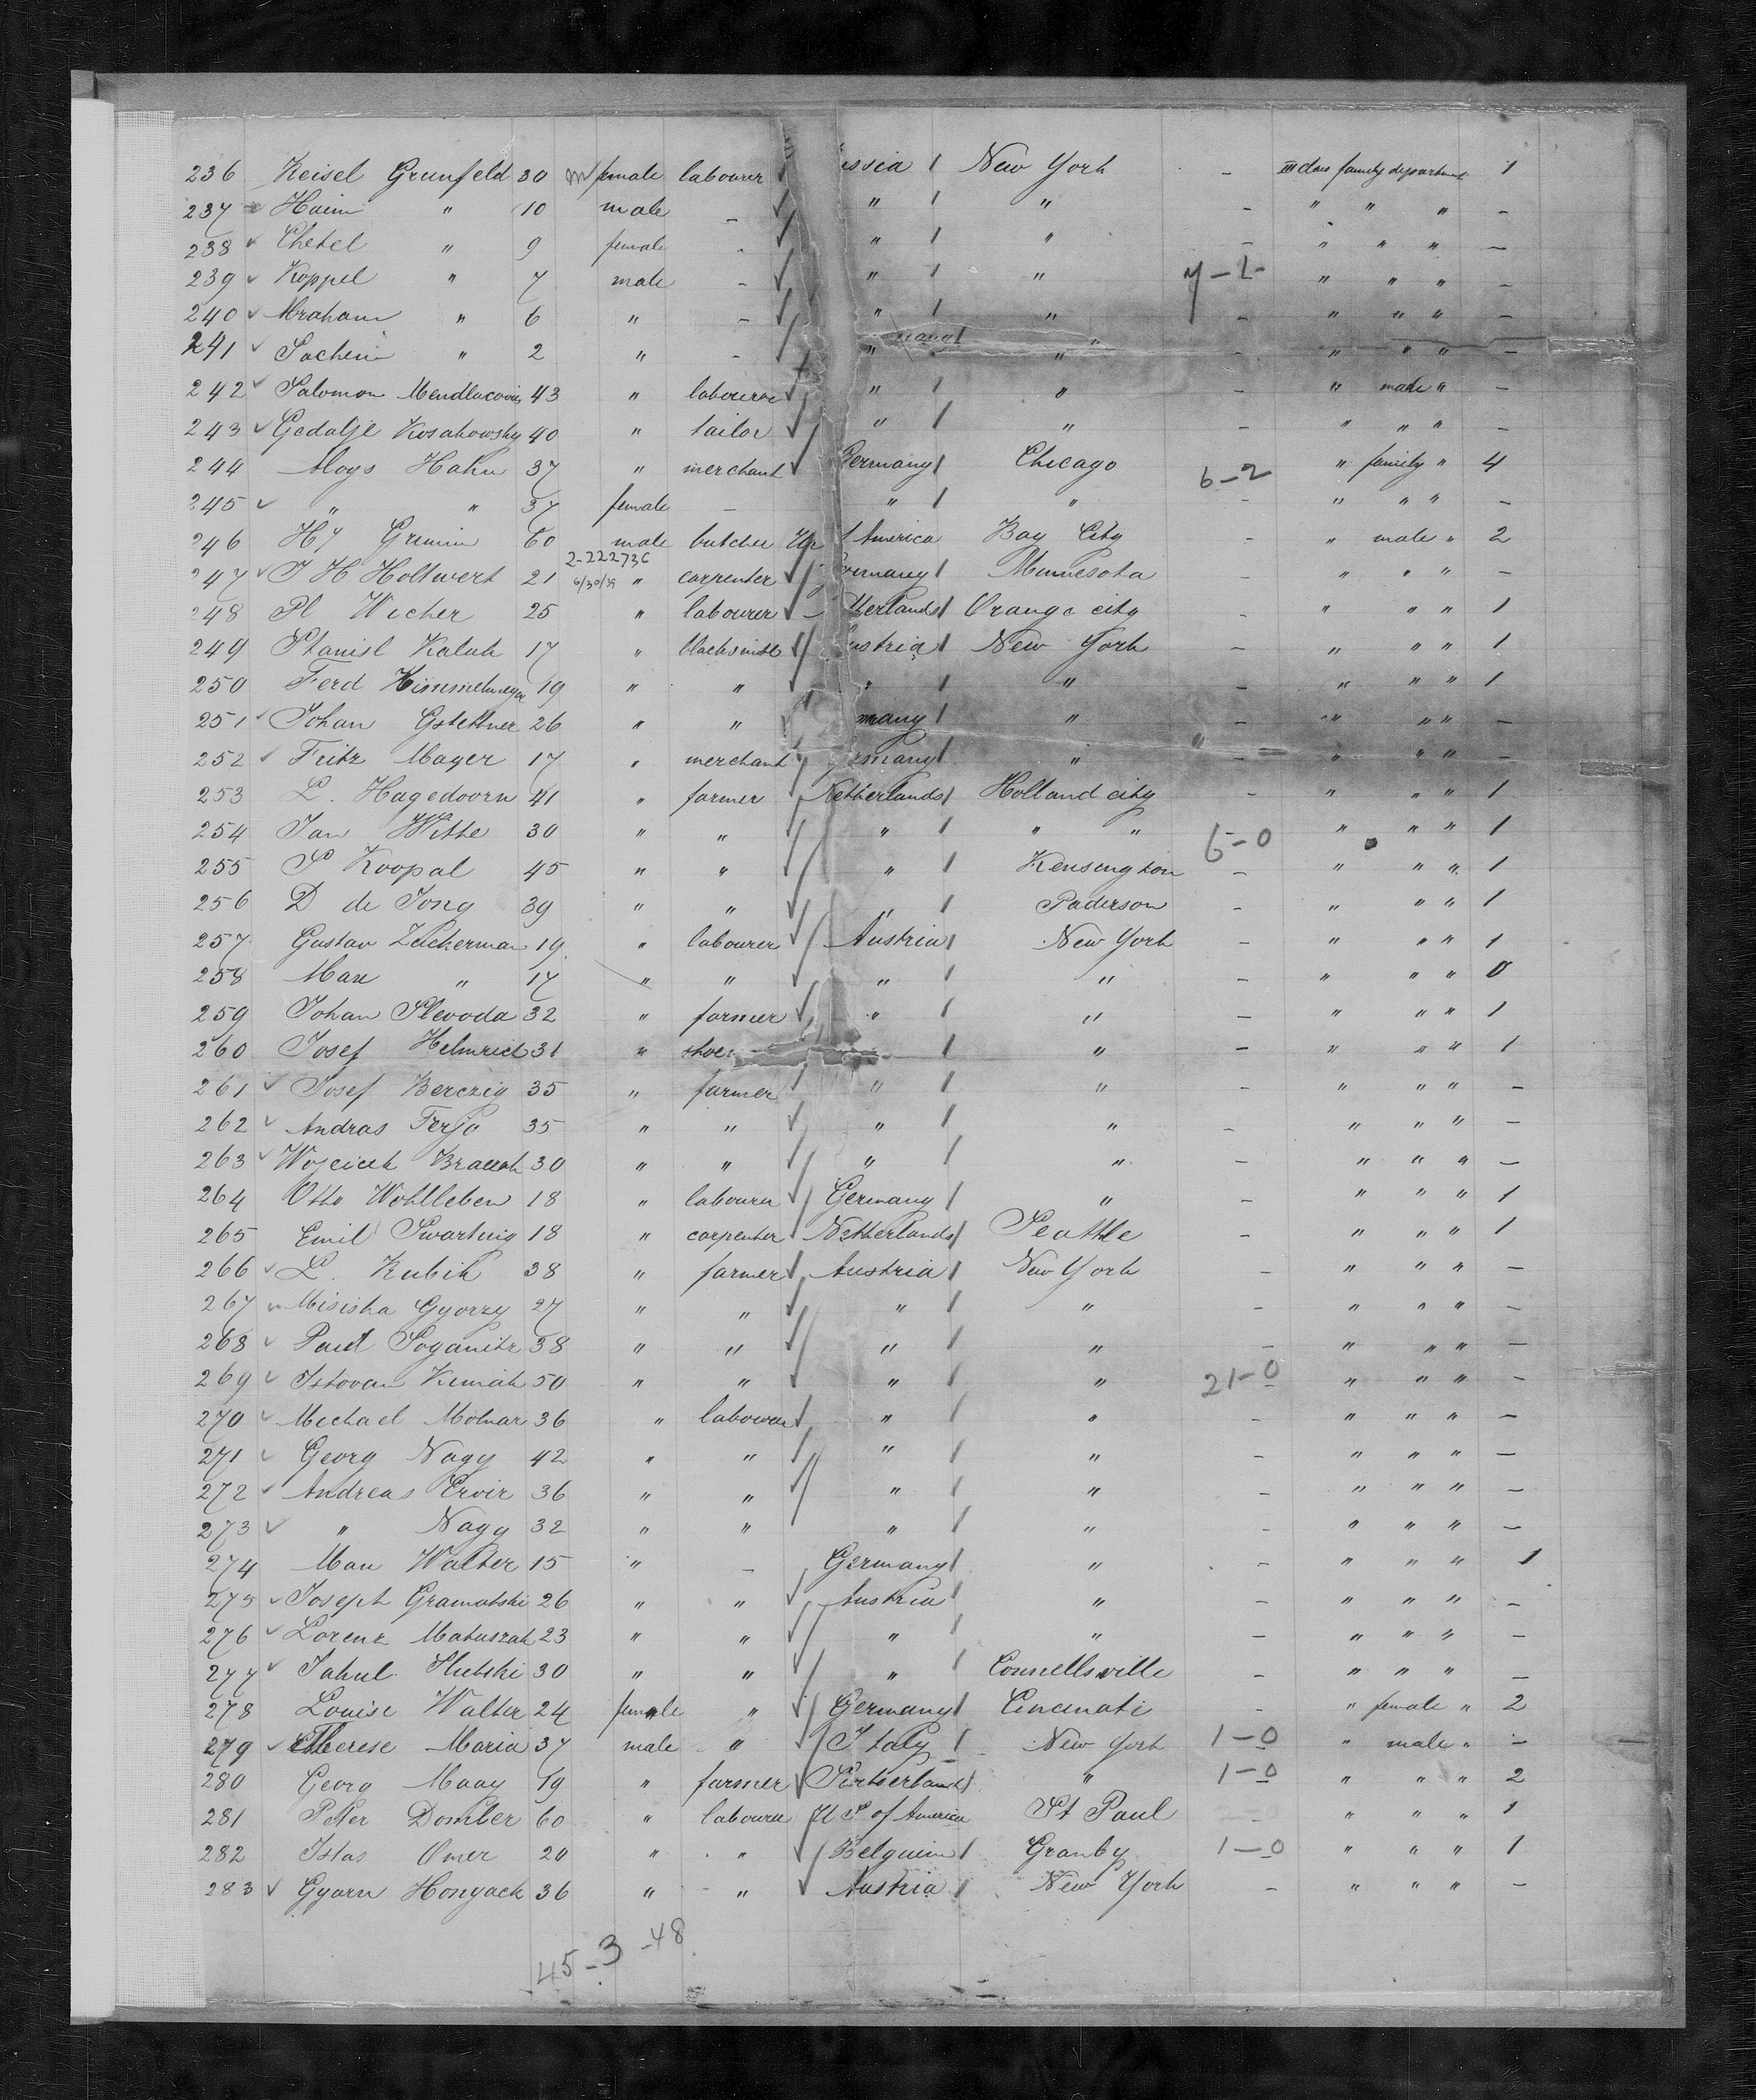 236 Keisel Grunfeld 30 female labourer ssia New York - III class family department 1
237 Haim " 10 male - " " - " " " -
238 Chetel " 9 female - " " - " " " -
239 Koppel " 7 male - " " 7-1- " " " -
240 Abraham " 6 " - " " - " " " -
241 Sachem " 2 " - " " - " " " -
242 Salomon 43 " labourer " " - " male " -
243 Gedalje Kosakowsky 40 " tailor " " - " " " -
244 Aloys Hahn 37 " merchant Germany Chicago 6-2 " family " 4
245 " " 37 female - " " - " " " -
246 Hy Grimm 60 male butcher America Bay City - " male " 2
2-222736
247 J H Holtwert 21 6/30/39 " carpenter Germany Minnesota - " " " -
248 Pl Wicher 25 " labourer therlands Orange city - " " " 1
249 Stanisl Kaluk 17 " blacksmith ustria New York - " " " 1
250 Ferd Himmelmeyer 19 " " " " - " " " 1
251 Johan Gstettner 26 " " many " - " " " -
252 Fritz Mayer 17 " merchant Germany " - " " " -
253 L. Hagedoorn 41 " farmer Netherlands Holland city - " " " 1
254 Jan Witte 30 " " " " " 6-0 " " " 1
255 S Koopal 45 " " " Kensington - " " " 1
256 D de Jong 39 " " " Paderson - " " " 1
257 Gustav Zuckerman 19 " labourer Austria New York - " " " 1
258 Max " 17 " " " " - " " " 0
259 Johan Slevoda 32 " farmer " " - " " " 1
260 Josef Helmrich 31 " shoe " - " " " 1
261 Josef Berczig 35 " farmer " " - " " " -
262 Andras Ferjo 35 " " " " - " " " -
263 Wojciech 30 " " " " - " " " -
264 Otto Wohlleben 18 " labourer Germany " - " " " 1
265 Emil Swartuig 18 " carpenter Netherlands Seattle - " " " 1
266 L. Kubik 38 " farmer Austria New York - " " " -
267 Misiska Gyorzy 27 " " " " - " " " -
268 Paul Soganitz 38 " " " " - " " " -
269 Istovan Kimiak 50 " " " " 21-0 " " " -
270 Michael Molnar 36 " labourer " " - " " " -
271 Georg Nagy 42 " " " " - " " " -
272 Andreas Ervir 36 " " " " - " " " -
273 " Nagy 32 " " " " - " " " -
274 Max Walter 15 " - Germany " - " " " 1
275 Joseph Gramatski 26 " " Austria " - " " " -
276 Lorenz Matuszak 23 " " " " - " " " -
277 Jakul Slutski 30 " " " Connellsville - " " " -
278 Louise Walter 24 female " Germany Cincinati - " female " 2
279 Therese Maria 37 male " Italy New York 1-0 " male " -
280 Georg Maay 19 " farmer " 1-0 " " " 2
281 Peter Domber 60 " labourer U S of America St Paul " " " 1
282 Istas Omer 20 " " Belguim Granby 1-0 " " " 1
283 Gyorn Honyack 36 " " Austria New York - " " " -
45-3-48